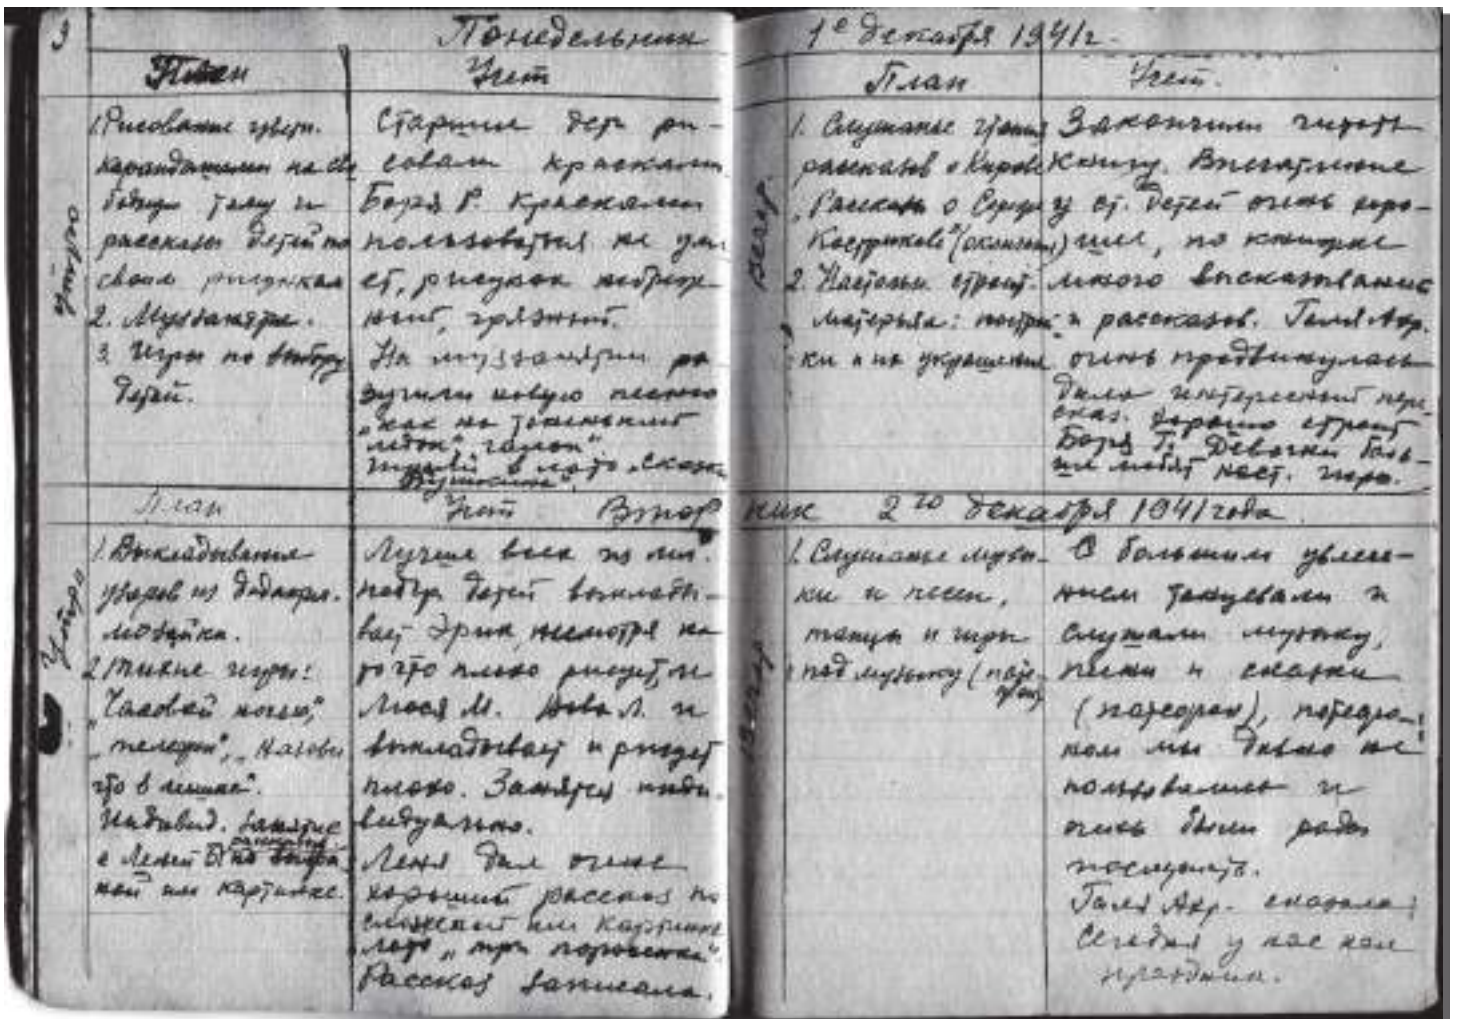 3
Понедельник
1е декабря 1941г.
План
Учет
План
Учет.
Утро
1. Рисование цветн.
карандашами на сво
бодную тему и
рассказы детей по
своим рисункам
2. Музанятие.
3. Игры по выбору
детей.
Старшие дети ри-
совали красками
Боря Р. красками
пользоваться не уме
ет, рисунок небреж-
ный, грязный.
На музанятии ра
зучили новую песню
„как на тоненький
ледок"
Играли в лото „сказки
Пушкина".
Вечер.
1. Слушанье чтения
рассказов о Кирове
„Рассказы о Сереже
Кострикове" (окончание)
2. Настольн. строит.
матерьял: построй
ки и на украшения
Закончили читать
книгу. Впечатление
у ст. детей очень хоро-
шее, по книжке
много высказываний
и рассказов. Галя Авр.
очень продвинулась
дала интересный пере-
сказ. Хорошо строит
Боря Г. Девочки боль-
ше любят наст. игры.
План
Учет
Вторник 2го декабря 1941 года.
Утро
1. Выкладывания
узоров из дидактич.
мозаики.
2. Тихие игры:
„Часовой ночью",
„телефон", „Назови
что в мешке".
Индивид. занятие
рассказыв.
с Леней Б. по выбран
ной им картинке.
Лучше всех из мл.
выклады-
вает Эрик, несмотря на
то что плохо рисует, и
Люся М. Вова Л. и
выкладывает и рисует
плохо. Заняться инди-
видуально.
Леня дал очень
хороший рассказ по
сложенной им картинке
лото „три поросенка".
Рассказ записала.
Вечер
1. Слушанье музы-
ки и песен,
танцы и игры
под музыку (пате-
фон)
С большим увлече-
нием танцевали и
слушали музыку,
песни и сказки
(патефон), патефо-
ном мы давно не
пользовались и
очень были рады
послушать.
Галя Авр. сказала:
Сегодня у нас как
праздник.